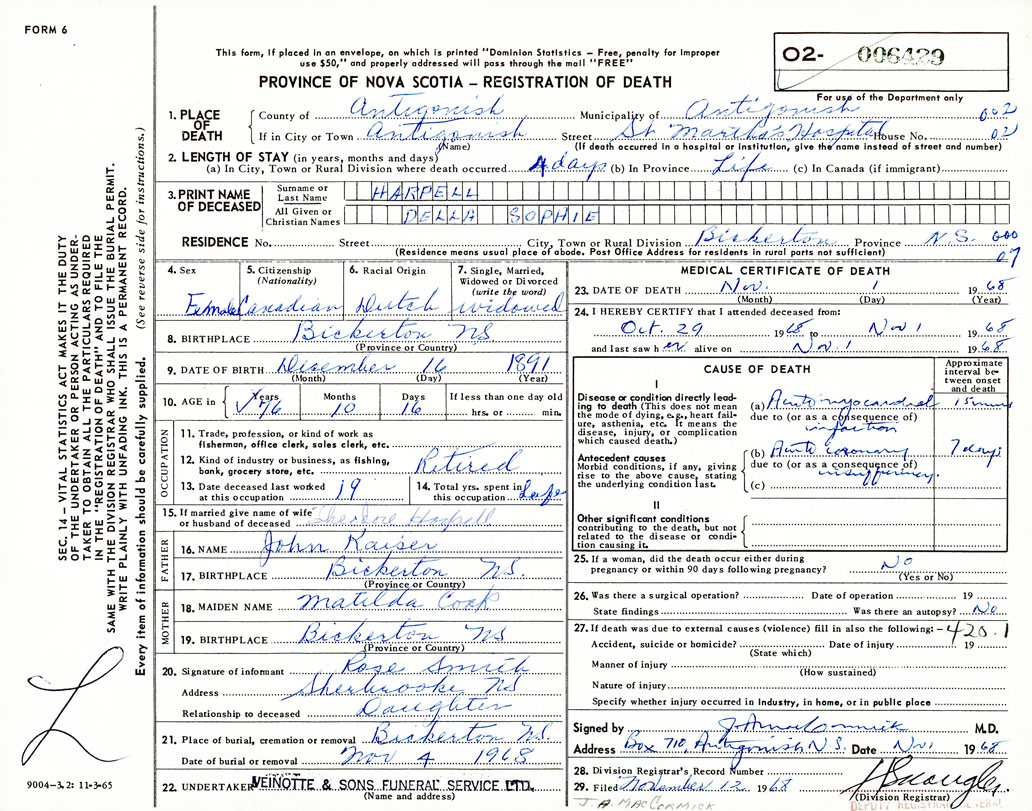 FORM 6
This form, if placed in an envelope, on which is printed "Dominion Statistics – Free, penalty for improper
use $50," and properly addressed will pass through the mail "FREE"
PROVINCE OF NOVA SCOTIA – REGISTRATION OF DEATH
O2- 006429
For use of the Department only
1. PLACE OF DEATH { County of Antigonish Municipality of Antigonish 002
If in City or Town Antigonish Street St Martha's Hospital House No. 02
(Name) (If death occurred in a hospital or institution, give the name instead of street and number)
2. LENGTH OF STAY (in years, months and days)
(a) In City, Town or Rural Division where death occurred 4 days (b) In Province Life (c) In Canada (if immigrant)
3. PRINT NAME OF DECEASED { Surname or Last Name HARPELL
All Given or Christian Names DELLA SOPHIE
RESIDENCE No. Street City, Town or Rural Division Bickerton Province N.S. 000
(Residence means usual place of abode. Post Office Address for residents in rural parts not sufficient) 07
4. Sex Female
5. Citizenship (Nationality) Canadian
6. Racial Origin Dutch
7. Single, Married, Widowed or Divorced (write the word) widowed
8. BIRTHPLACE Bickerton NS
(Province or Country)
9. DATE OF BIRTH December 16 1891
(Month) (Day) (Year)
10. AGE in { Years Months Days If less than one day old
√ 76 10 16 hrs. or min.
OCCUPATION
11. Trade, profession, or kind of work as
fisherman, office clerk, sales clerk, etc.
12. Kind of industry or business, as fishing,
bank, grocery store, etc. Retired
13. Date deceased last worked
at this occupation 19
14. Total yrs. spent in
this occupation Life
15. If married give name of wife
or husband of deceased Theodore Harpell
FATHER
16. NAME John Kaiser
17. BIRTHPLACE Bickerton NS.
(Province or Country)
MOTHER
18. MAIDEN NAME Matilda Cook
19. BIRTHPLACE Bickerton NS
(Province or Country)
20. Signature of informant Rose Smith
Address Sherbrooke NS
Relationship to deceased Daughter
21. Place of burial, cremation or removal Bickerton NS.
Date of burial or removal Nov 4 1968
22. UNDERTAKER VEINOTTE & SONS FUNERAL SERVICE LTD.
(Name and address)
MEDICAL CERTIFICATE OF DEATH
23. DATE OF DEATH Nov. 1 1968
(Month) (Day) (Year)
24. I HEREBY CERTIFY that I attended deceased from:
Oct. 29 1968 to Nov 1 1968
and last saw her alive on Nov. 1 1968
CAUSE OF DEATH
Approximate interval between onset and death
I
Disease or condition directly leading
to death (This does not mean
the mode of dying, e.g., heart failure,
asthenia, etc. It means the
disease, injury, or complication
which caused death.)
(a) Acute myocardial 15 mins
due to (or as a consequence of)
infarction
Antecedent causes
Morbid conditions, if any, giving
rise to the above cause, stating
the underlying condition last.
(b) Acute coronary 7 days
due to (or as a consequence of)
insufficiency.
(c)
II
Other significant conditions
contributing to the death, but not
related to the disease or condition
causing it.
25. If a woman, did the death occur either during
pregnancy or within 90 days following pregnancy? No
(Yes or No)
26. Was there a surgical operation? Date of operation 19
State findings Was there an autopsy? No
27. If death was due to external causes (violence) fill in also the following: - 420.1
Accident, suicide or homicide? Date of injury 19
(State which)
Manner of injury
(How sustained)
Nature of injury
Specify whether injury occurred in industry, in home, or in public place
Signed by M.D.
Address Box 710, Antigonish N.S. Date Nov 1 1968
28. Division Registrar's Record Number
29. Filed November 12 1968
(Division Registrar)
DEPUTY REGISTRAR GENERAL
J. A. MACCORMICK
SEC. 14 – VITAL STATISTICS ACT MAKES IT THE DUTY
OF THE UNDERTAKER OR PERSON ACTING AS UNDERTAKER
TO OBTAIN ALL THE PARTICULARS REQUIRED
IN THE "REGISTRATION OF DEATH" AND TO FILE THE
SAME WITH THE DIVISION REGISTRAR WHO SHALL ISSUE THE BURIAL PERMIT.
WRITE PLAINLY WITH UNFADING INK. THIS IS A PERMANENT RECORD.
Every item of information should be carefully supplied. (See reverse side for instructions.)
9004-3.2: 11-3-65